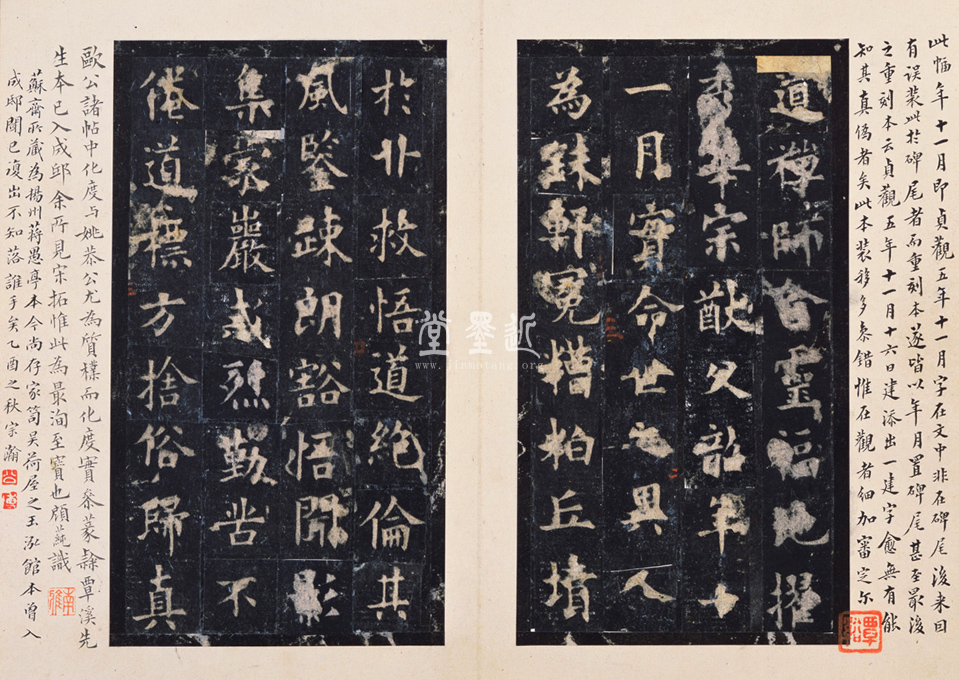 此幅年十一月即貞觀五年十一月字在文中非在碑尾後来因
有误装此於碑尾者而重刻本遂皆以年月置碑尾甚至最後
之重刻本云貞觀五年十一月十六日建添出一建字愈無有能
知其真偽者矣此本装移多叅錯惟在觀者細加審定尔
覃谿
道禪師含靈福地擢
秀華宗猷父韶年十
一月實命世之異人
為銖軒冕糟粕丘墳
於廿救悟道絶倫其
風鑒疎朗豁悟聞彰
集家嚴戒烈勤苦不
倦道標方捨俗歸真
歐公諸帖中化度与姚恭公尤為質樸而化度實叅篆隸覃溪先
生本已入成邸余所見宋拓惟此為最洵至寶也顧蒓識
南雅
蘇齋所藏為揚州蔣愚亭本今尚存家笥吴荷屋之玉泓館本曾入
成邸聞已復出不知落誰手矣乙酉之秋宗瀚
近墨堂
www.jinmotang.org